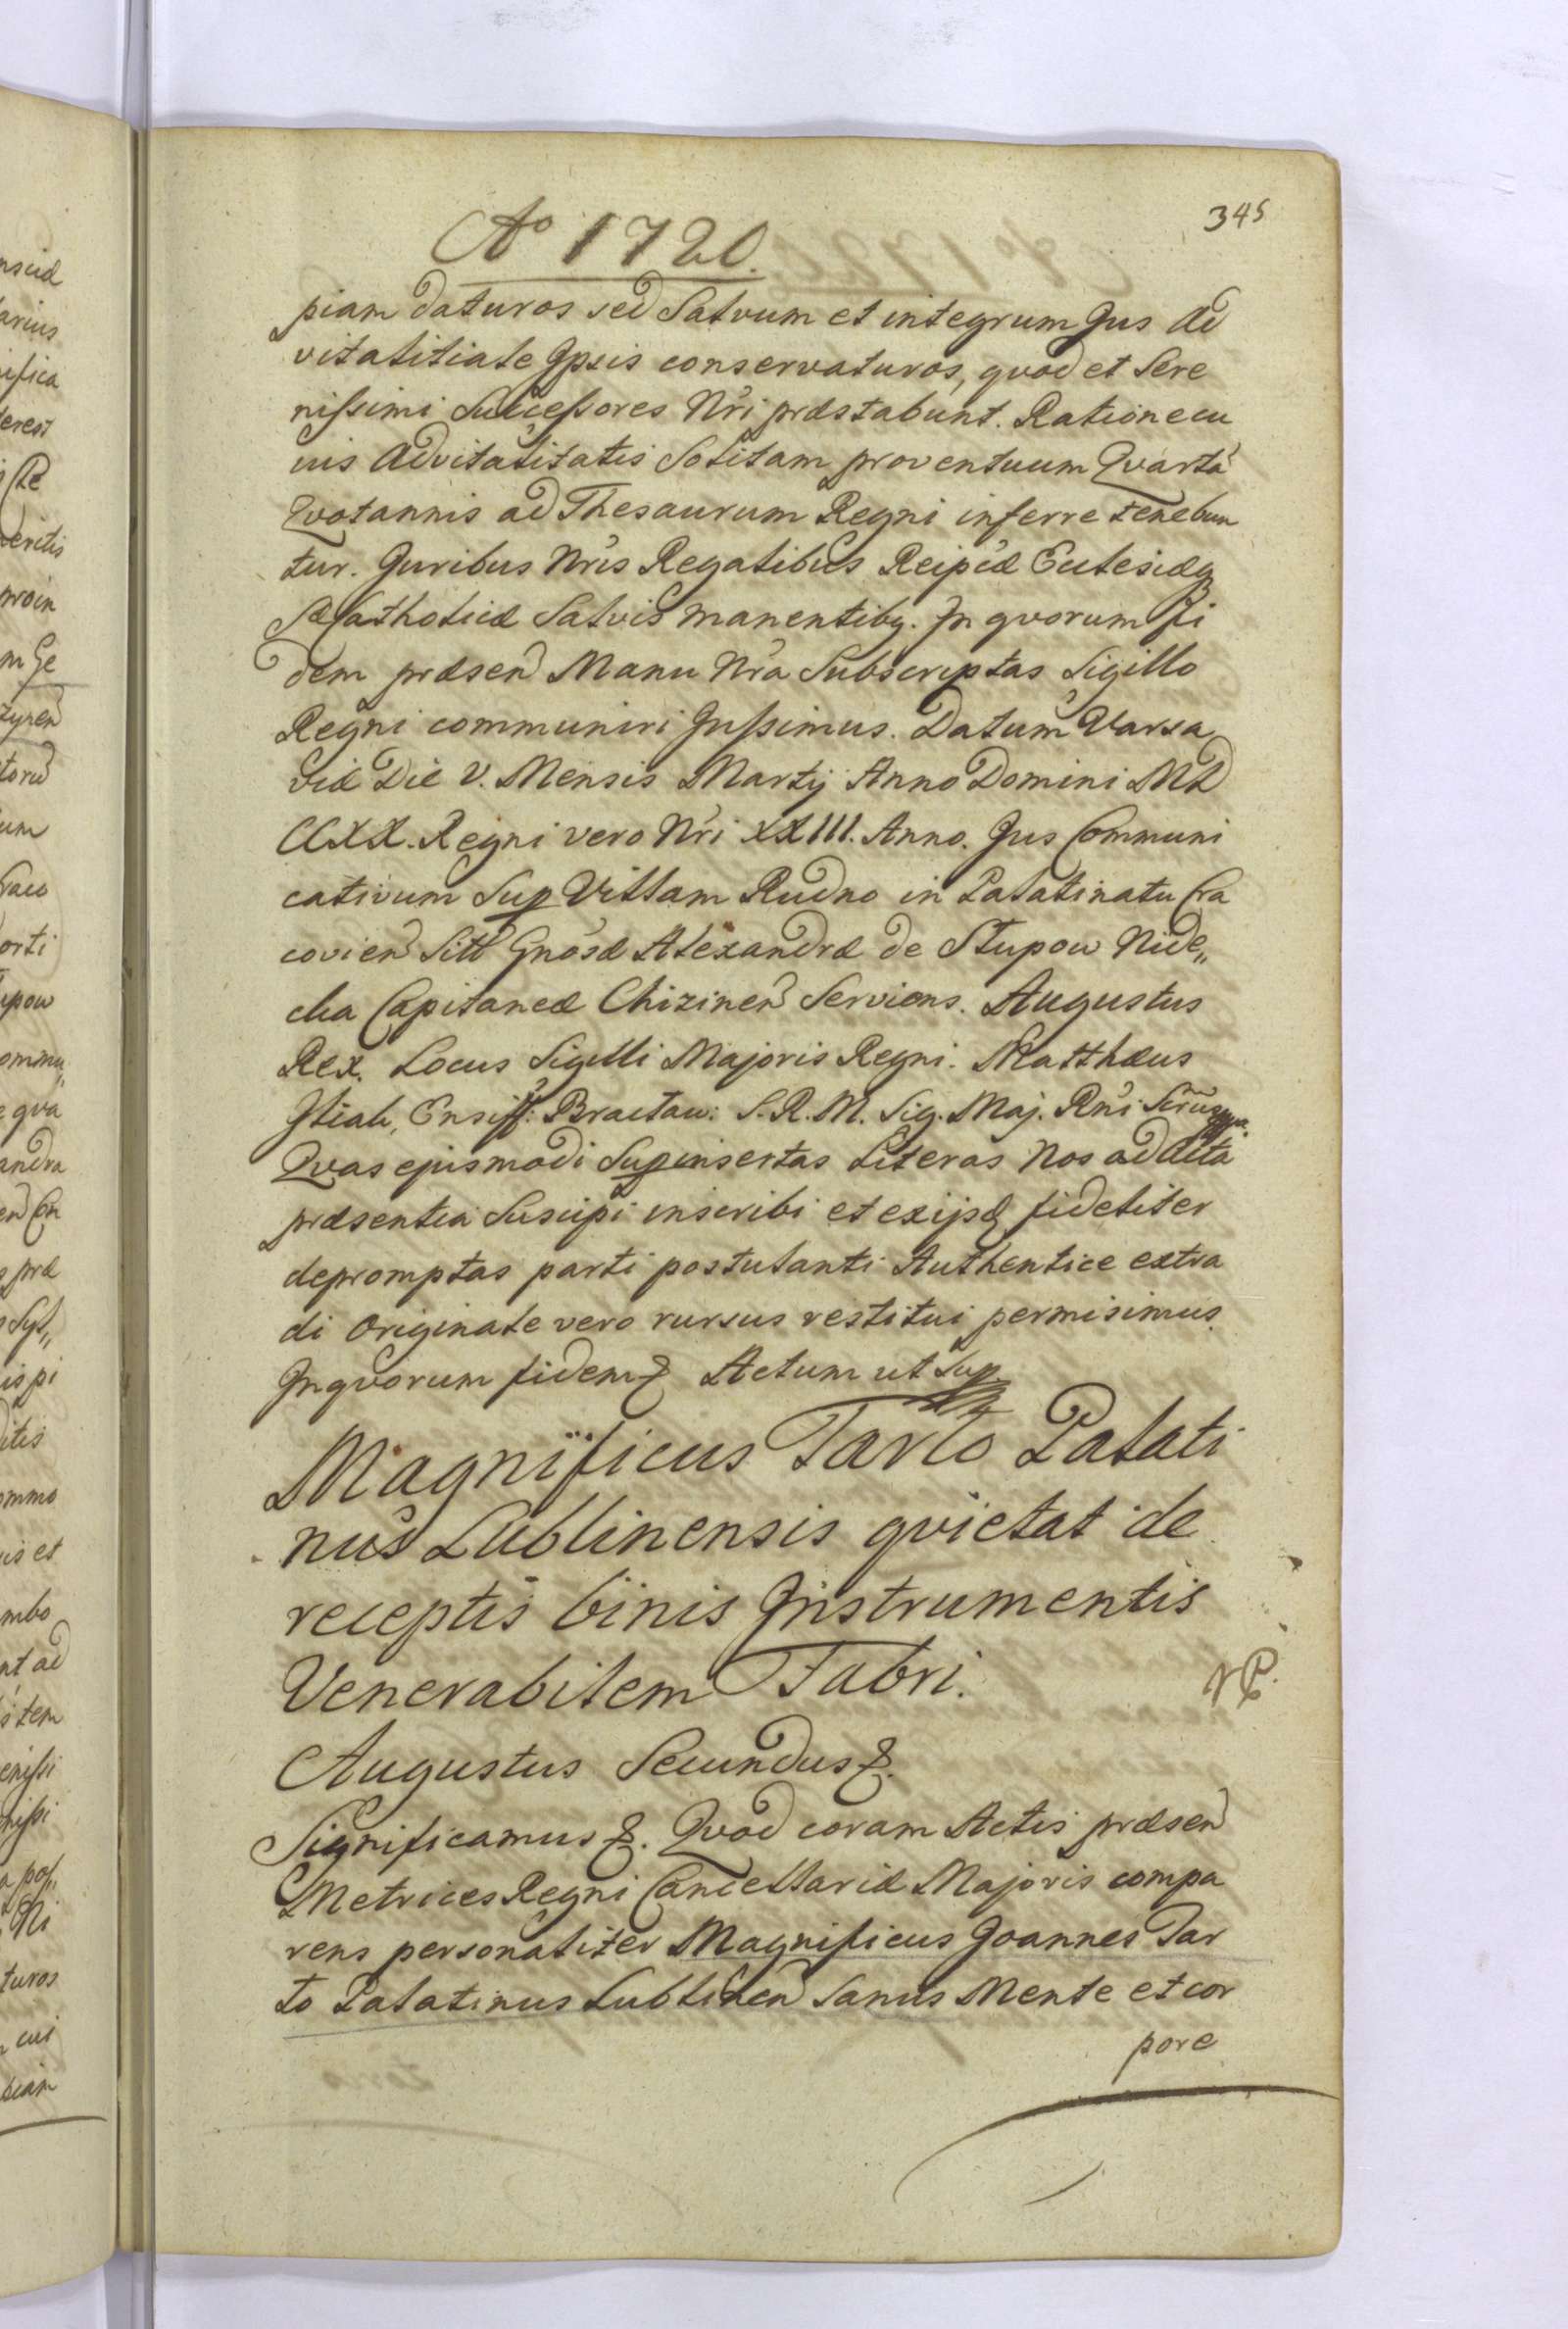 345
Ao 1720.
piam daturos sed Salvum et integrum Jus Ad
vitalitiale Ipsis conservaturos, qvod et Sere
nissimi Successores Nri præstabunt. Ratione cu
ius Advitalitatis Solitam proventuum Qvartã
Qvotannis ad Thesaurum Regni inferre tenebun
tur. Juribus Nris Regalibus Reipcæ Eclesiæq
Catholicæ Salvis manentibq. In qvorum fi
dem præsen Manu Nra Subscriptas Sigillo
Regni communiri Jussimus. Datum Varsa
viæ Die V. Mensis Martij Anno Domini MD
CCXX. Regni vero Nri XXIII. Anno. Jus Communi
cativum Sup Villam Rudno in Palatinatu Cra
covien Sitt Gnosæ Alexandræ de Stupow Nide„
cka Capitaneæ Chizinen Serviens. Augustus
Rex. Locus Sigilli Majoris Regni. Matthæus
Ensiff: Bractaw: S. R. M. Sig. Maj. Rni Scrius
Qvas ejusmodi Supinsertas Literas Nos ad Acta
præsentia Suscipi inscribi et exijsq fideliter
depromptas parti postulanti Authentice extra
di Originale vero rursus restitui permisimus.
Inqvorum fidem & Actum ut Sup.
Magnificus Tarlo Palati
nus Lublinensis qvietat de
receptis binis Instrumentis
Venerabilem Fabri.
Augustus Secundus &.
Significamus &. Qvod coram Actis præsen
Metrices Regni Cancellariæ Majoris compa
rens personaliter Magnificus Joannes Tar
lo Palatinus Lublinen Sanus Mente et cor
pore